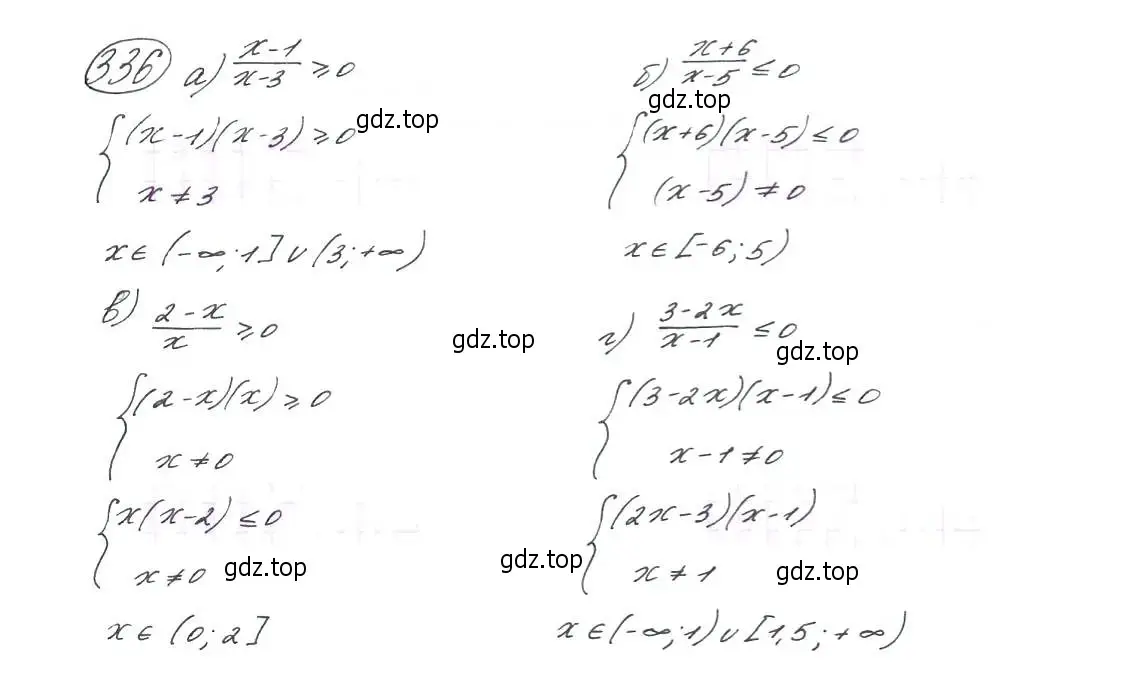 336 а) (x-1)/(x-3) ≥ 0
{ (x-1)(x-3) ≥ 0
x ≠ 3
x ∈ (-∞; 1] ∪ (3; +∞)
gdz.top
б) (x+6)/(x-5) ≤ 0
gdz.top
{ (x+6)(x-5) ≤ 0
(x-5) ≠ 0
x ∈ [-6; 5)
в) (2-x)/x ≥ 0
gdz.top
{ (2-x)(x) ≥ 0
x ≠ 0
{ x(x-2) ≤ 0
x ≠ 0
gdz.top
x ∈ (0; 2]
г) (3-2x)/(x-1) ≤ 0
gdz.top
{ (3-2x)(x-1) ≤ 0
x-1 ≠ 0
{ (2x-3)(x-1)
x ≠ 1
gdz.top
gdz.top
x ∈ (-∞; 1) ∪ [1,5; +∞)